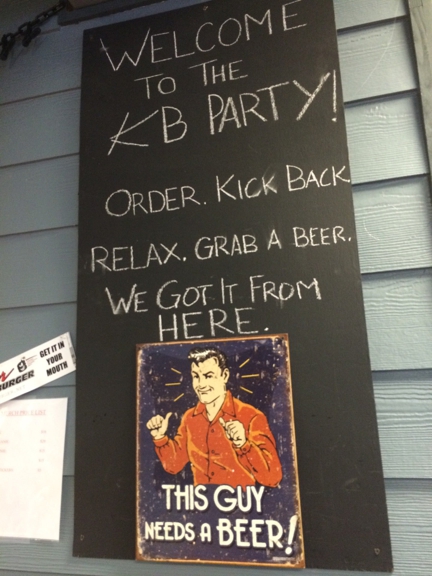 WELCOME
TO THE
KB PARTY!
ORDER. KICK BACK
RELAX. GRAB A BEER.
WE GOT IT FROM
HERE.
GET IT IN
YOUR
MOUTH
BURGER
THIS GUY
NEEDS A BEER!